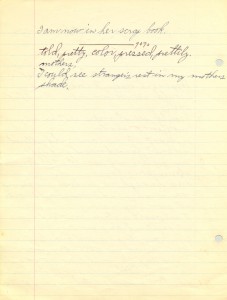 I am now in her serge book.
yoyo
told, pretty, color, pressed, prettily.
mothers.
I could see strangers rest in my mothers
shade.